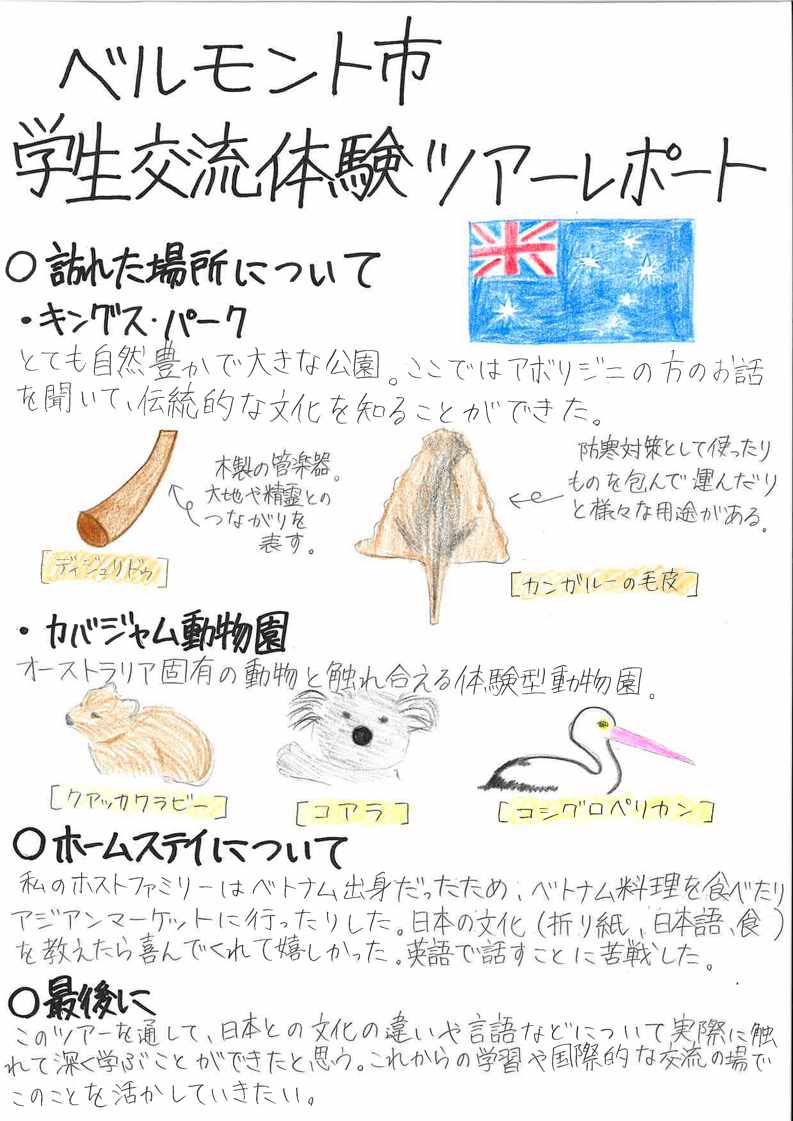 ベルモント市
学生交流体験ツアーレポート
○ 訪れた場所について
・キングス・パーク
とても自然豊かで大きな公園。ここではアボリジニの方のお話
を聞いて、伝統的な文化を知ることができた。
木製の管楽器。
大地や精霊との
つながりを
表す。
[ディジュリドゥ]
防寒対策として使ったり
ものを包んで運んだり
と様々な用途がある。
[カンガルーの毛皮]
・カバジャム動物園
オーストラリア固有の動物と触れ合える体験型動物園。
[クアッカワラビー]
[コアラ]
[コシグロペリカン]
○ホームステイについて
私のホストファミリーはベトナム出身だったため、ベトナム料理を食べたり
アジアンマーケットに行ったりした。日本の文化(折り紙、日本語、食)
を教えたら喜んでくれて嬉しかった。英語で話すことに苦戦した。
○最後に
このツアーを通して、日本との文化の違いや言語などについて実際に触
れて深く学ぶことができたと思う。これからの学習や国際的な交流の場で
このことを活かしていきたい。